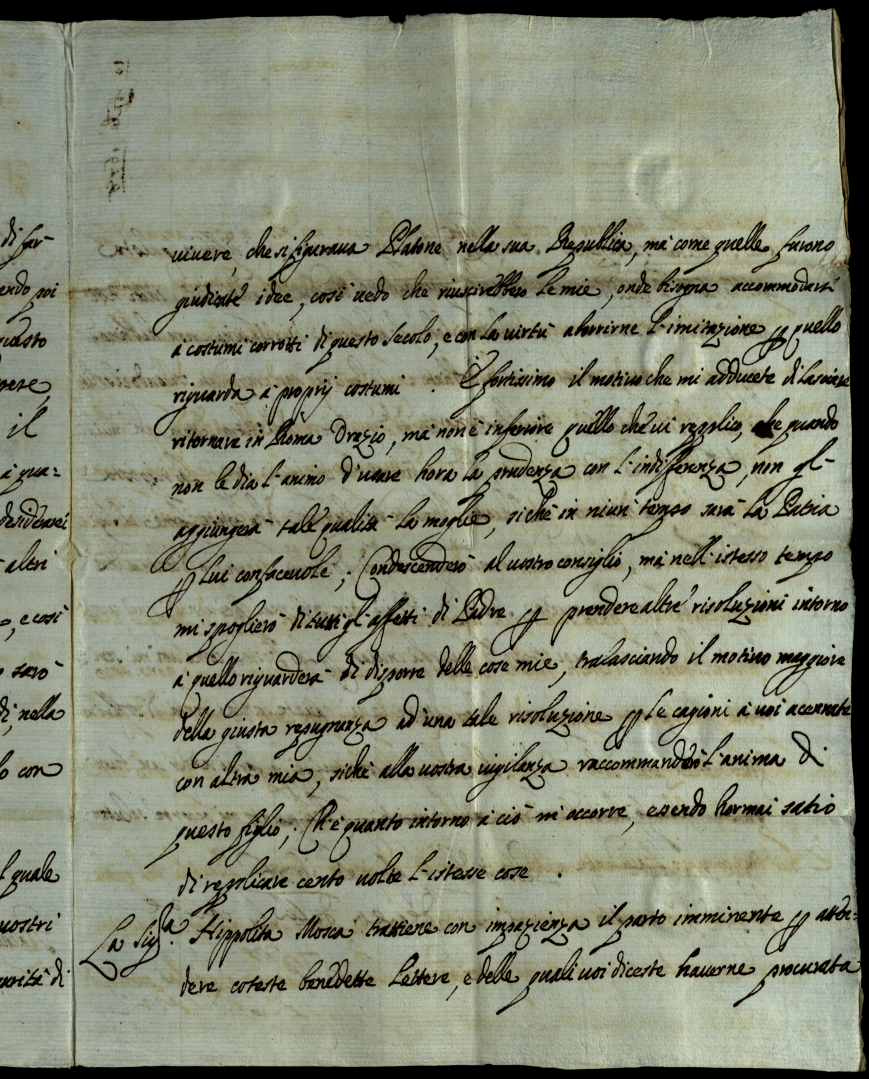 di far-
vivere, che si figurava Platone nella sua Republica, mà come quelle furono
endo poi
giudicate idee, così vedo che riuscirebbero le mie, onde bisogna accommodarsi
questo
à costumi corrotti di questo secolo, e con la virtù aborrirne l'imitazione ꝑ quello
riguarda à proprij costumi. È fortissimo il motivo che mi adducete di lasciare
il
ritornare in Roma Orazio, mà non è inferiore quello che vi replico, che quando
à qua=
non le dia l'animo d'usare hora la prudenza con l'indifferenza, non gl-
desiderarei
aggiungerà tale qualità la moglie, sichè in niun tempo sarà la Patria
altri
ꝑ lui confacevole; Condescenderò al vostro consiglio, mà nell'istesso tempo
e così
mi spoglierò di tutti gl'affetti di Padre ꝑ prendere altre risoluzioni intorno
sarò
à quello riguarderà di disporre delle cose mie, tralasciando il motivo maggiore
di, nella
della giusta repugnanza ad una tale risoluzione ꝑ le cagioni à voi acennate
con
con altra mia, sichè alla vostra vigilanza raccommanderò l'anima di
questo figlio; Ch'è quanto intorno à ciò mi occorre, essendo hormai satio
di replicare cento volte l'istesse cose.
quale
vostri
La Sig.ra Hippolita Mosca trattiene con impazienza il parto imminente ꝑ atten=
di
dere coteste benedette lettere, e delle quali voi diceste haverne procurata